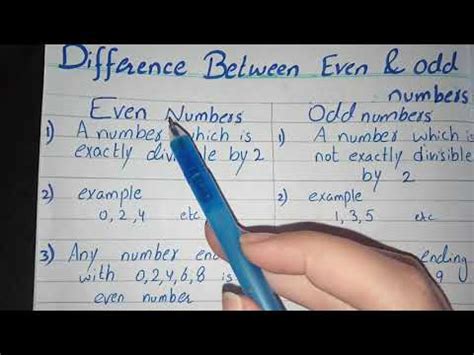 Difference Between Even & odd
numbers
Even Numbers
1) A number which is
exactly divisible by 2
2) example
0, 2, 4 etc
3) Any number
with 0, 2, 4, 6, 8 is
even number
Odd numbers
1) A number which is
not exactly divisible
by 2
2) example
1, 3, 5 etc
ending
9